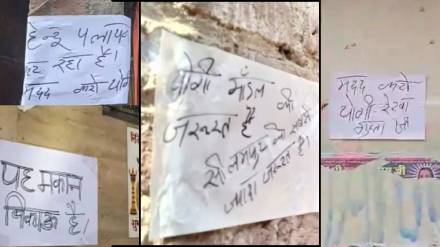 हिन्दू पलायन
कर रहा है।
मदद करो योगी
यह मकान
बिकाऊ है।
योगी मॉडल की
जरूरत है
सीलमपुर को सबसे
ज्यादा जरूरत है।
मदद करो
योगी-रेखा
गुप्ता जी